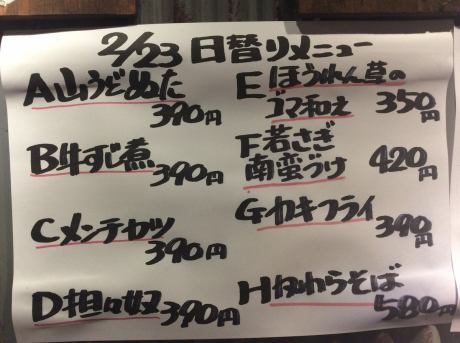 2/23 日替りメニュー
A山うどぬた
390円
B牛すじ煮
390円
Cメンチカツ
390円
D担々奴 390円
Eほうれん草の
ゴマ和え 350円
F若さぎ
南蛮づけ 420円
Gカキフライ
390円
Hねわらそば
580円